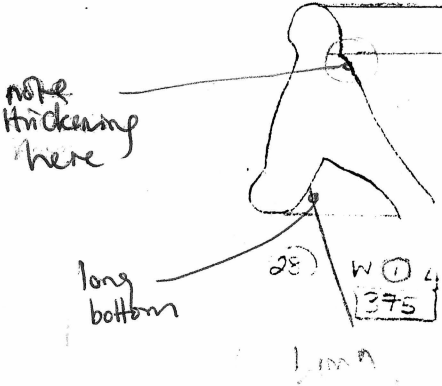 note
thickening
here
long
bottom
28
W 1 4
375